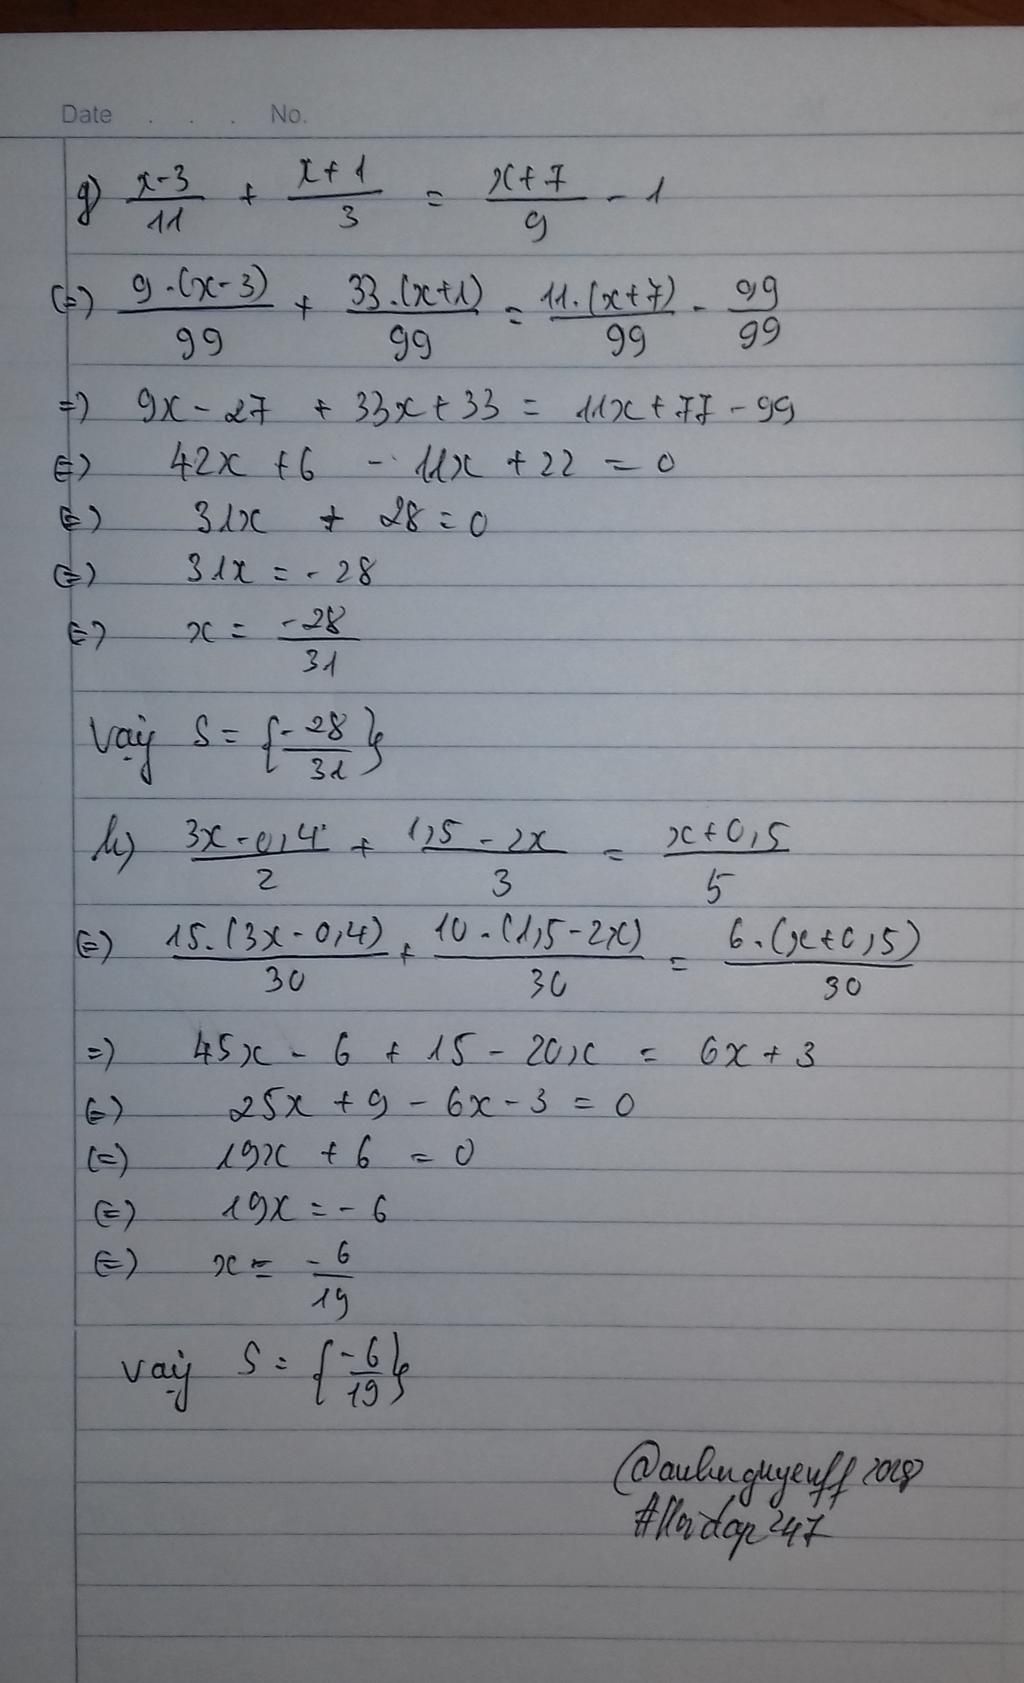 Date . . . No.
g) x-3/11 + x+1/3 = x+7/9 - 1
(=) 9.(x-3)/99 + 33.(x+1)/99 = 11.(x+7)/99 - 99/99
=) 9x - 27 + 33x + 33 = 11x + 77 - 99
(=) 42x + 6 - 11x + 22 = 0
(=) 31x + 28 = 0
(=) 31x = -28
(=) x = -28/31
Vậy S = {-28/31}
h) 3x-0,4/2 + 1,5-2x/3 = x+0,5/5
(=) 15.(3x-0,4)/30 + 10.(1,5-2x)/30 = 6.(x+0,5)/30
=) 45x - 6 + 15 - 20x = 6x + 3
(=) 25x + 9 - 6x - 3 = 0
(=) 19x + 6 = 0
(=) 19x = -6
(=) x = -6/19
Vậy S = {-6/19}